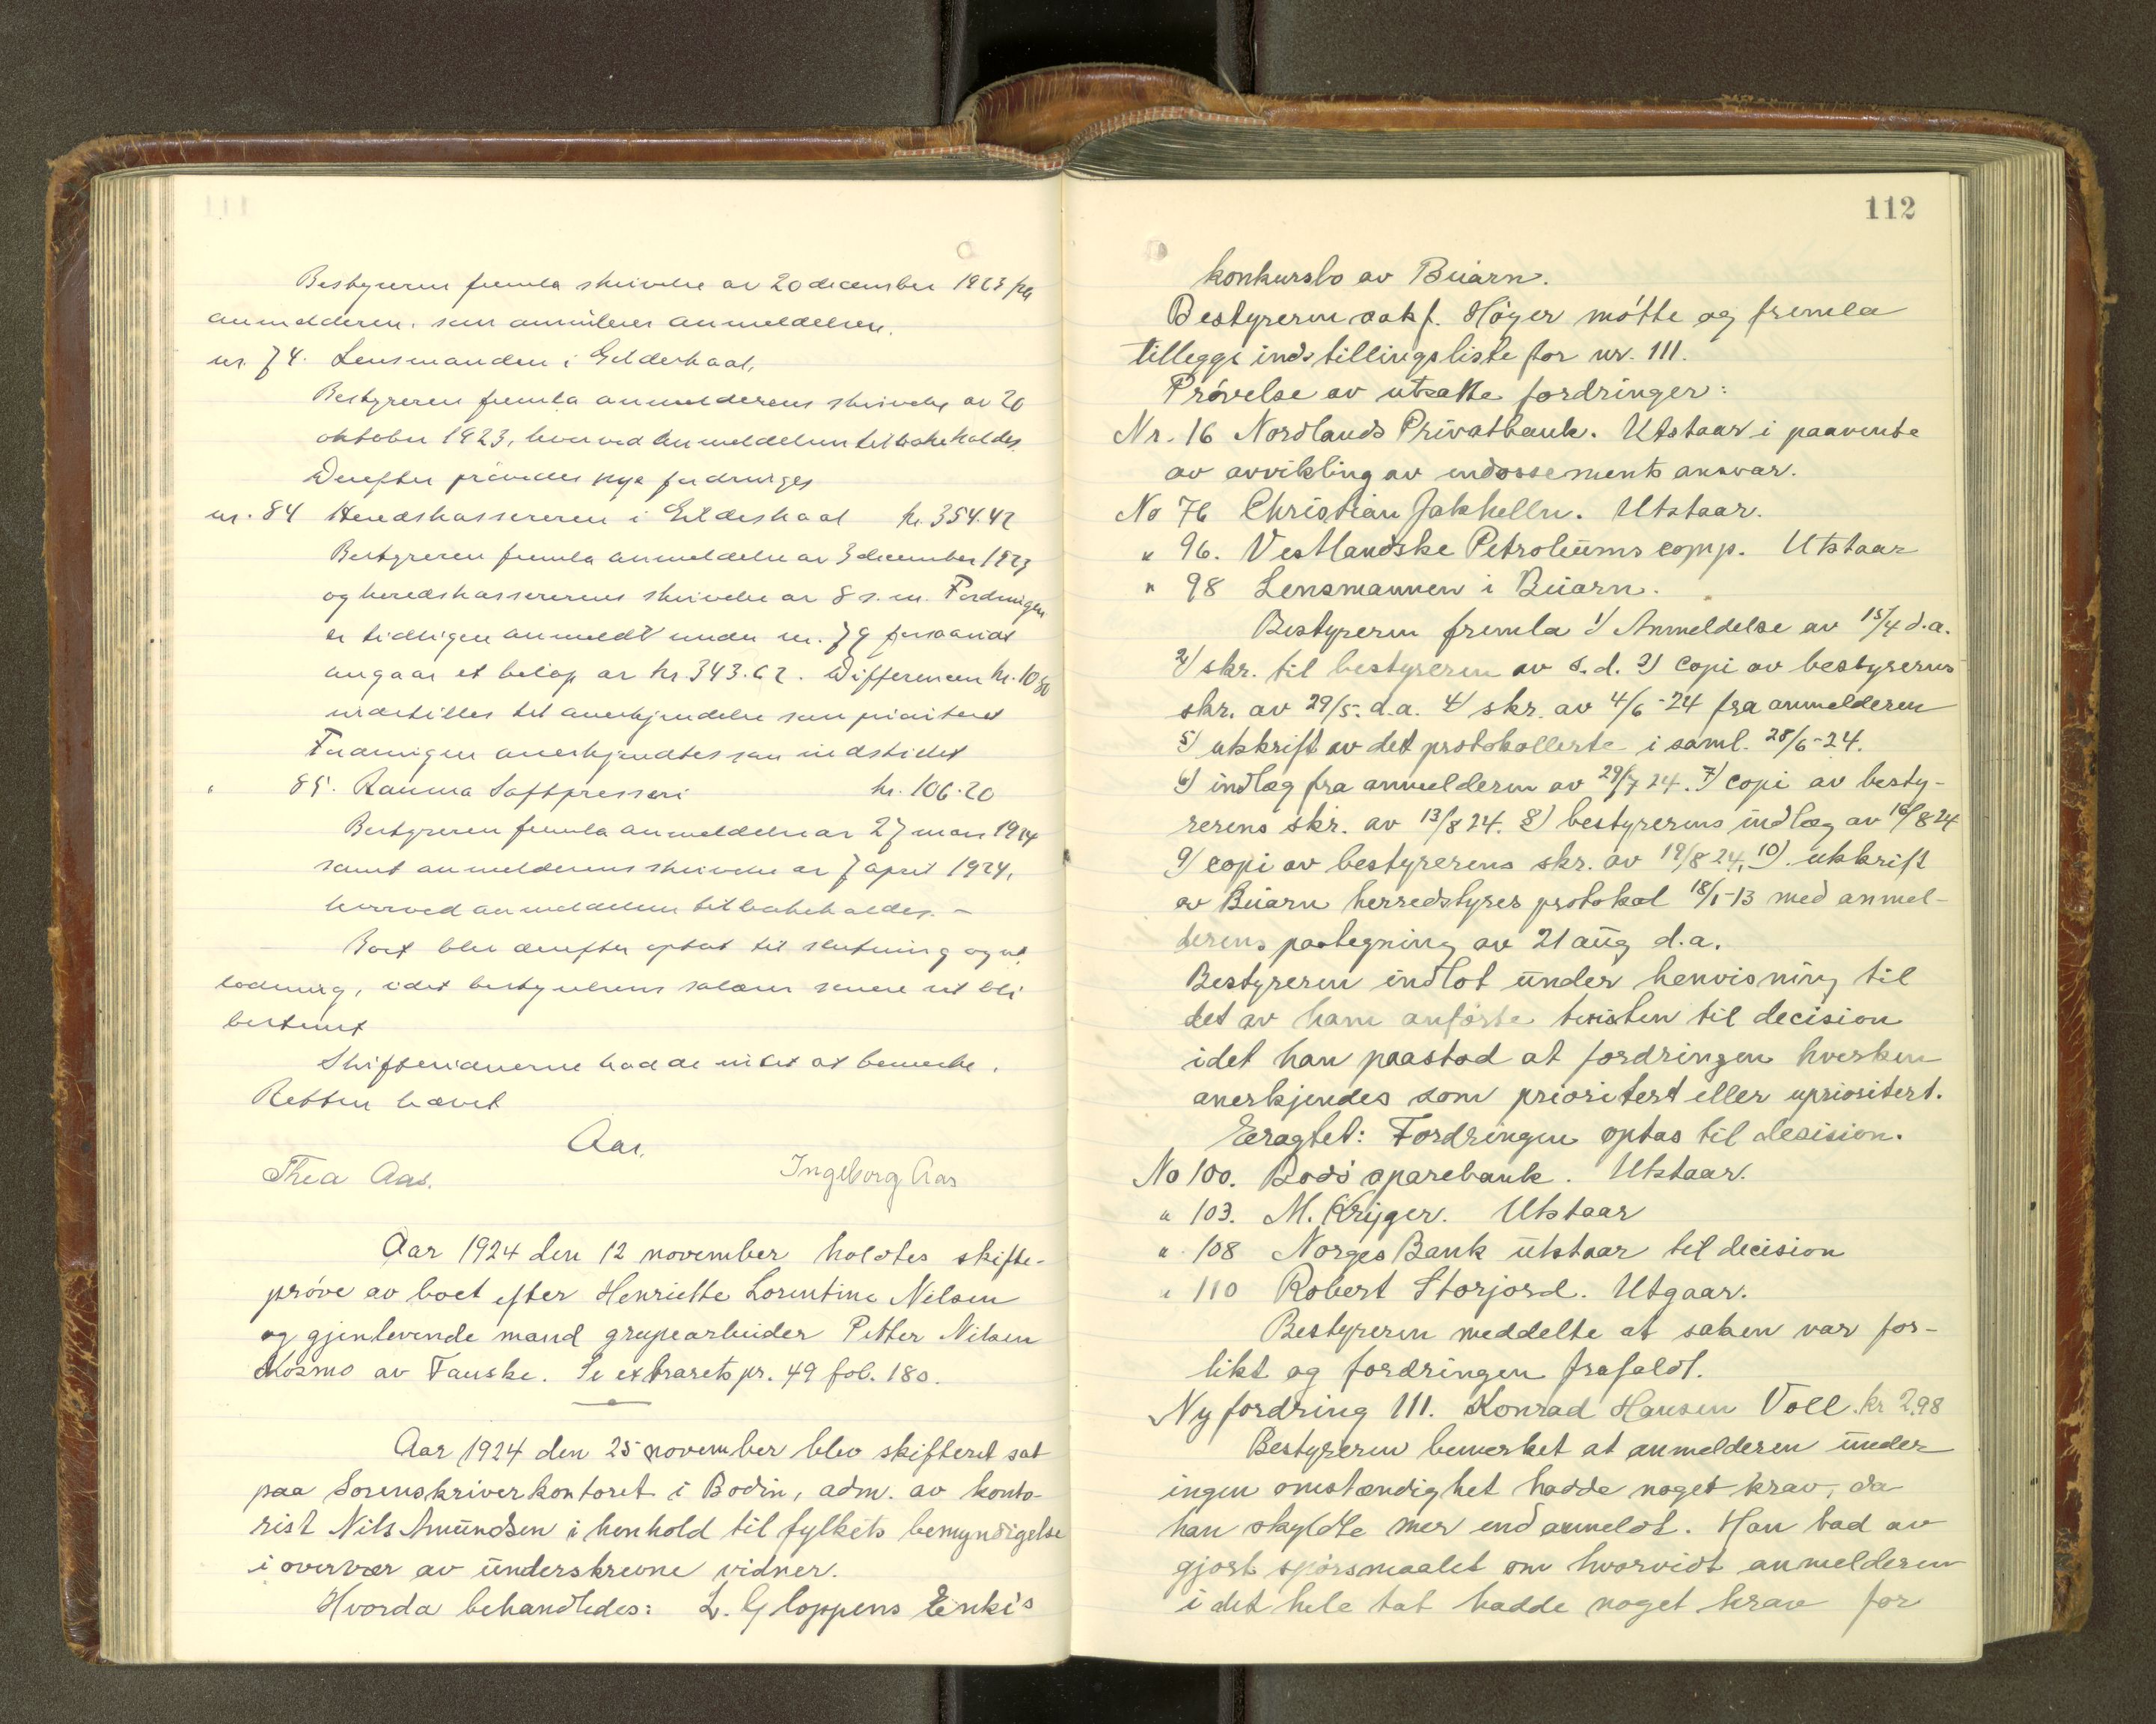 Bestyreren fremla skrivelse av 20 december 1923 fra
anmelderen, som annulerer anmeldelsen.
nr. 74. Lensmanden i Gildeskaal.
Bestyreren fremla anmelderens skrivelse av 20
oktober 1923, hvorved anmeldelsen tilbakekaldes.
Derefter prövedes nye fordringer
nr. 84 Heredskassereren i Gildeskaal kr. 354.42
Bestyreren fremla anmeldelse av 3 december 1923
og heredskassererens skrivelse av 8 s.m. Fordringen
er tidligere anmeldt under nr. 79 forsaavidt
angaar et belöp av kr. 343.62. Differencen kr. 10.80
indstilles til anerkjendelse som prioritert
Fordringen anerkjendtes som indstillet
" 85. Rauma Saftpresseri kr. 106.20
Bestyreren fremla anmeldelse av 27 mars 1924
samt anmelderens skrivelse av 7 april 1924,
hvorved anmeldelsen tilbakekaldes. -
Boet blev derefter optat til slutning og ut-
lodning, idet bestyrelsens salær senere vil bli
bestemt
Skiftevidnerne hadde intet at bemerke.
Retten hævet
Aas.
Thea Aas. Ingeborg Aas
Aar 1924 den 12 november holdtes skifte-
pröve av boet efter Henriette Lorentine Nilsen
og gjenlevende mand grupearbeider Petter Nilsen
Kosmo av Fauske. Se extraretspr. 49 fol. 180.
Aar 1924 den 25 november blev skifteret sat
paa Sorenskriverkontoret i Bodin, adm. av konto-
rist Nils Amundsen i henhold til fylkets bemyndigelse
i overvær av underskrevne vidner.
Hvorda behandledes: L. Gloppens Enke's
112
konkursbo av Beiarn.
Bestyreren sakf. Höyer mötte og fremla
tilleggs indstillingsliste for nr. 111.
Prövelse av utsatte fordringer:
Nr. 16 Nordlands Privatbank. Utstaar i paavente
av avvikling av endossements ansvar.
No 76 Christian Jakhelln. Utstaar.
" 96. Vestlandske Petroleums comp. Utstaar
" 98 Lensmannen i Beiarn.
Bestyreren fremla 1) Anmeldelse av 15/4 d.a.
2) skr. til bestyreren av s.d. 3) copi av bestyrerens
skr. av 29/5. d.a. 4) skr. av 4/6-24 fra anmelderen
5) utskrift av det protokollerte i saml. 28/6-24.
6) indlæg fra anmelderen av 29/7 24. 7) copi av besty-
rerens skr. av 13/8 24. 8) bestyrerens indlæg av 16/8 24
9) copi av bestyrerens skr. av 19/8 24. 10) utskrift
av Beiarn herredstyres protokol 18/1-13 med anmel-
derens paategning av 21 aug d.a.
Bestyreren indlot under henvisning til
det av ham anförte tvisten til decision
idet han paastod at fordringen hverken
anerkjendes som prioritert eller uprioritert.
Eragtet: Fordringen optas til decision.
No 100. Bodö sparebank. Utstaar.
" 103. M. Krüger. Utstaar
" 108 Norges Bank utstaar til decision
" 110 Robert Storjord. Utgaar.
Bestyreren meddelte at saken var for-
likt og fordringen frafaldt.
Ny fordring 111. Konrad Hansen Voll. kr 2,98
Bestyreren bemerket at anmelderen under
ingen omstændighet hadde noget krav, da
han skyldte mer end anmeldt. Han bad av
gjort spörsmaalet om hvorvidt anmelderen
i det hele tat hadde noget krav for